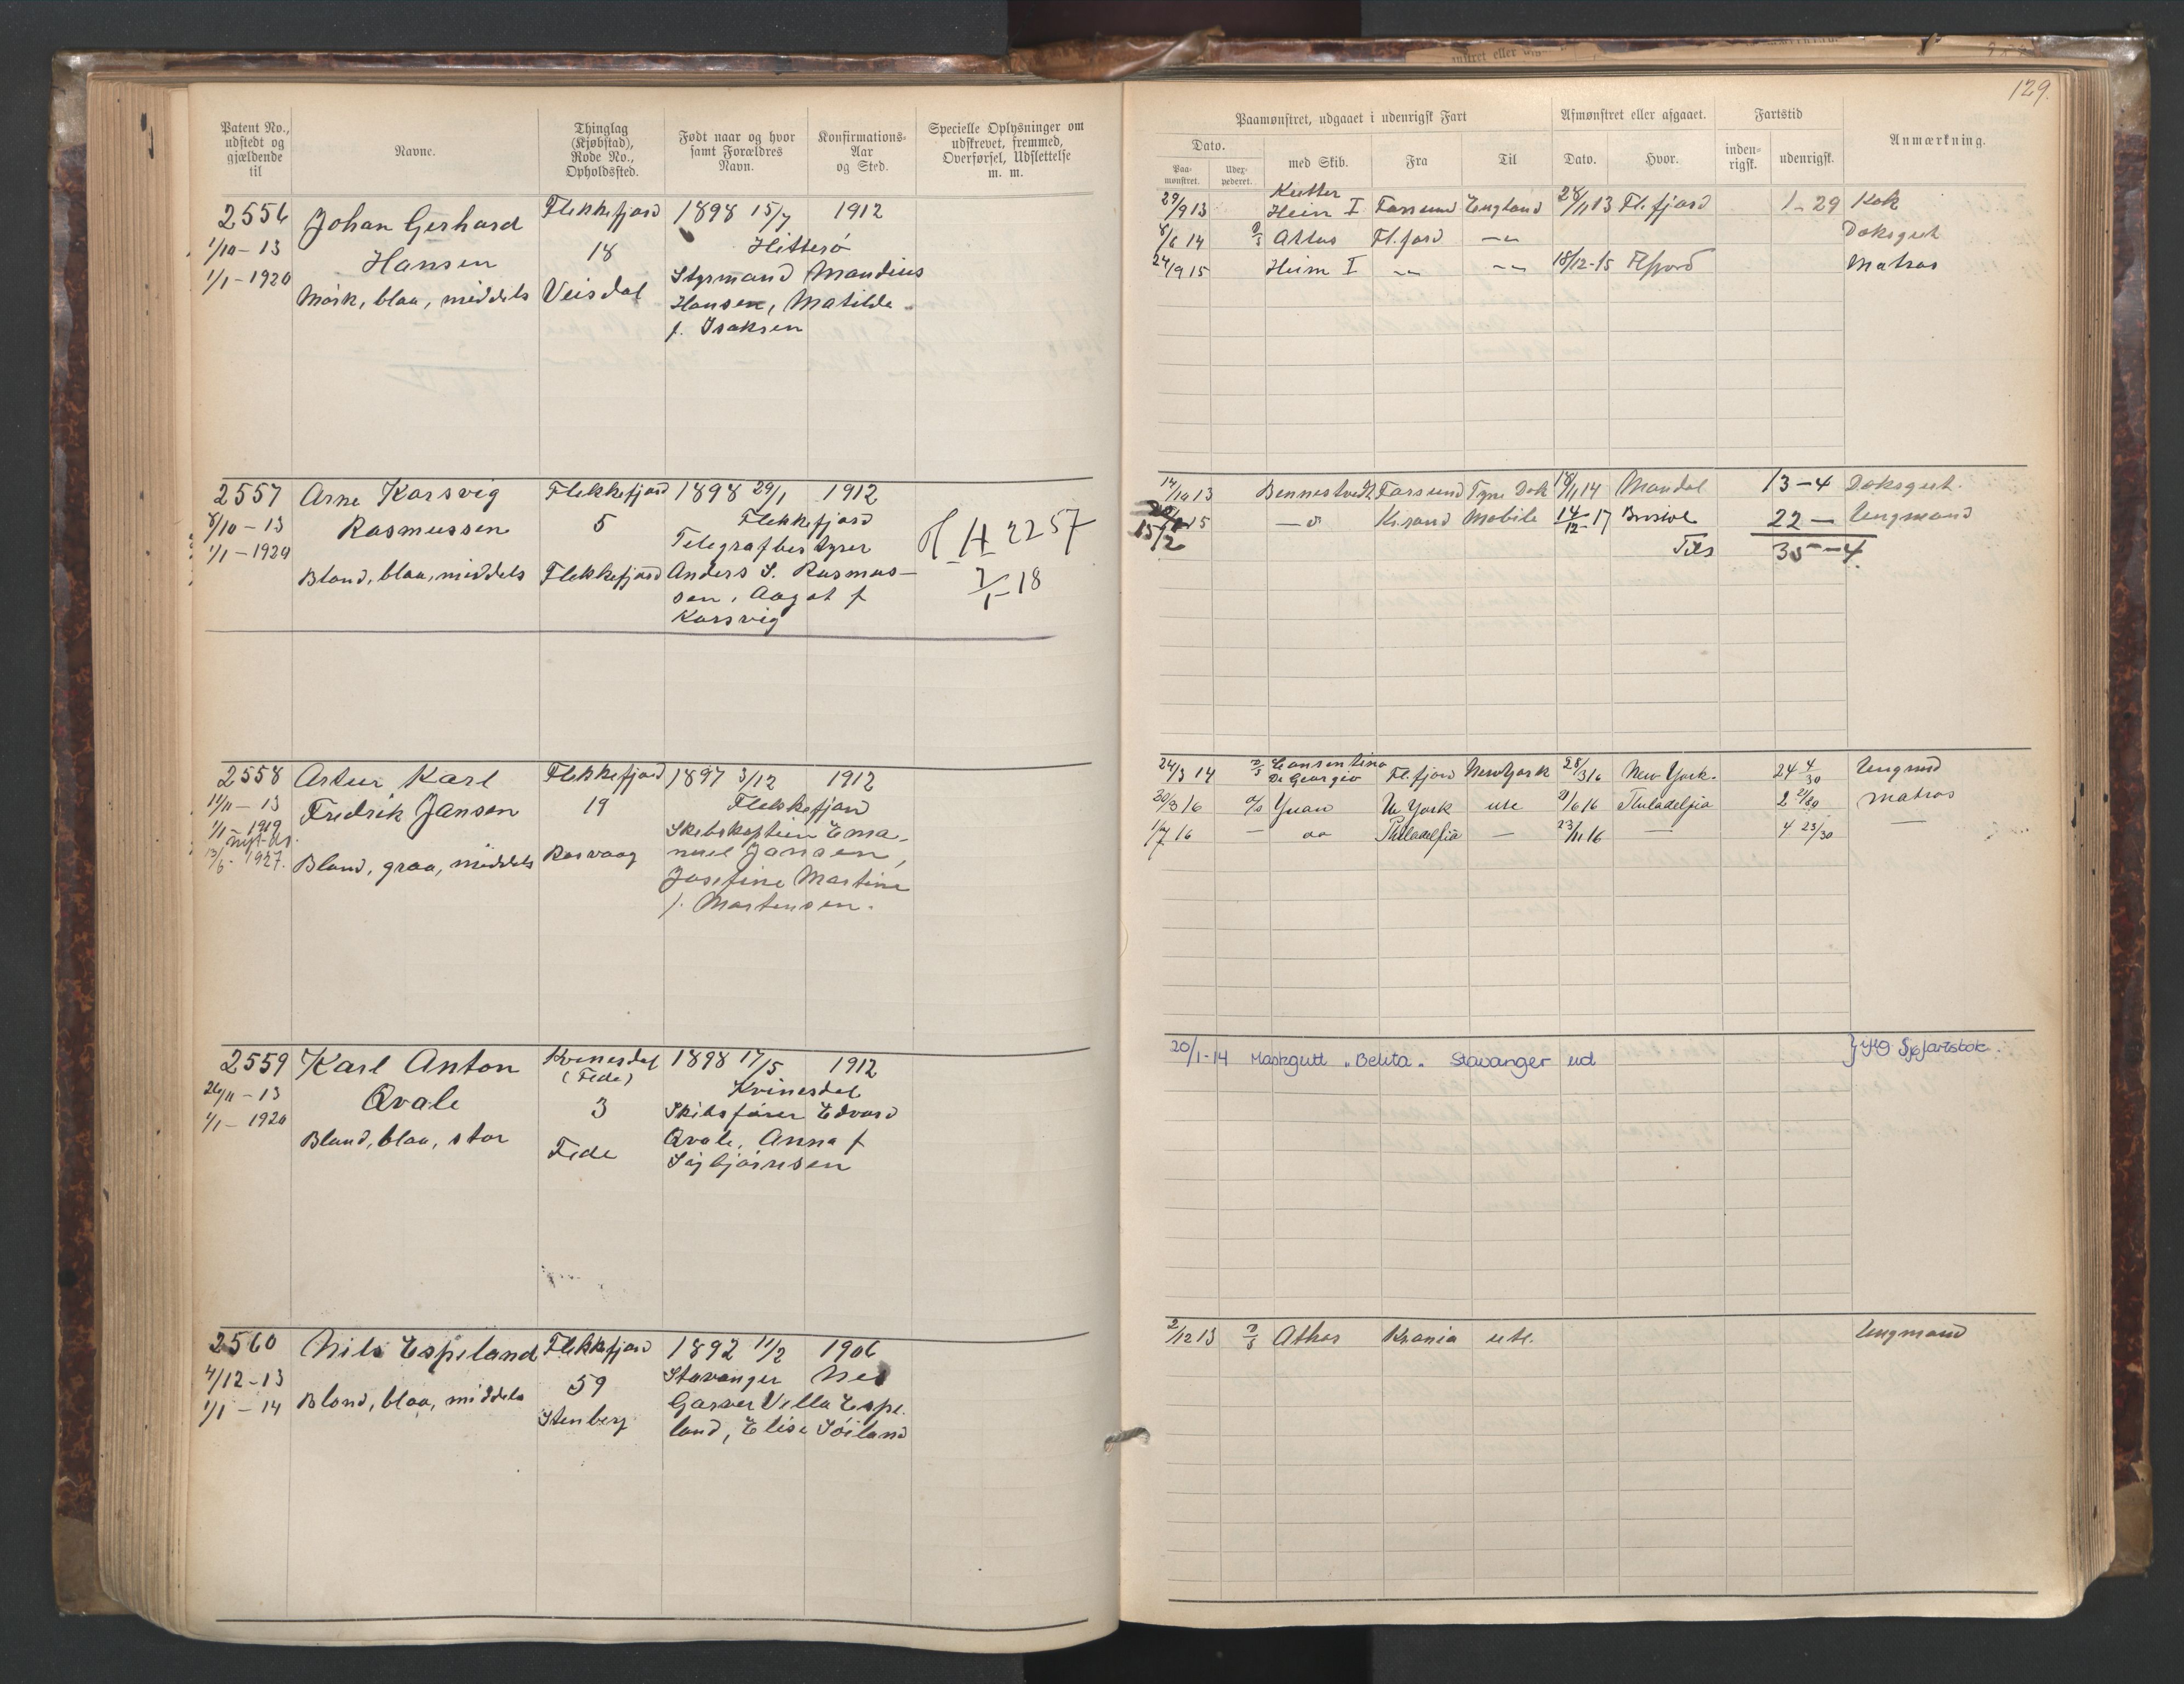 129.
Patent No., udstedt og gjældende til
Navne.
Thinglag (Kjøbstad), Rode No., Opholdssted.
Født naar og hvor samt Forældres Navn.
Konfirmations-Aar og Sted.
Specielle Oplysninger om udskrevet, fremmed, Overførsel, Udslettelse m. m.
Paamønstret, udgaaet i udenrigsk Fart
Afmønstret eller afgaaet.
Fartstid
Anmærkning.
Dato.
Paa-mønstret.
Udex-pederet.
med Skib.
Fra
Til
Dato.
Hvor.
inden-rigsk.
udenrigsk.
2556 Johan Gerhard Flekkefjord 1898 15/7 1912
1/10 - 13 Hansen 18 Hitterø
1/1 - 1920 Mørk, blaa, middels Veisdal Styrmand Mandius
Hansen, Matilde
f. Isaksen
Kutter
29/9 13 Heim I Farsund England 28/11 13 Fl.fjord 1 - 29 Kok
8/6 14 D/S Attas Fl.fjord -"- Dæksgut
24/9 15 Heim I -"- -"- 18/12-15 Flfjord Matros
2557 Arne Karsvig Flekkefjord 1898 29/1 1912
8/10 - 13 Rasmussen 5 Flekkefjord
1/1 - 1920 Telegrafbestyrer
Blond, blaa, middels Flekkefjord Anders S. Rasmus-
sen, Aagot f
Karsvig
H 2257
2/1-18
14/10 13 Bennestvedt Farsund Tyne Dok 18/1 14 Mandal 13 - 4 Dæksgut.
15/2 15 - " - Kr.sand Mobile 14/12-17 Bristol 22 - Ungmand
Tils 35 - 4.
2558 Artur Karl Flekkefjord 1897 3/12 1912
11/11 - 13 Fredrik Jansen 19 Flekkefjord
1/1 - 1919 Skibskaptein Ema-
nyt
13/6 - 1927. Blond, graa, middels Rasvaag nuel Jansen,
Josefine Martine
f. Martensen.
24/3 14 D/S Consentino Di Georgio Fl.fjord New York 28/3 16 New York. 24 4/30 Ungmd
20/3 16 D/S Yuan N. York ute 21/6 16 Philadelfia 2 21/30 Matros
1/7 16 — do Philadelfia — 23/11 16 — 4 23/30 —
2559 Karl Anton Kvinesdal 1898 17/5 1912
(Fede)
26/11 - 13 Qvale 3 Kvinesdal
1/1 - 1920 Skibsfører Edvard
Blond, blaa, stor Fede Qvale, Anna f
Sigbjørnsen
20/1-14 Maskgutt „Belita„ Stavanger ud } Sjøfartsbok.
2560 Nils Espeland Flekkefjord 1892 11/2 1906
4/12 - 13 59 Stavanger Nes
1/1 - 14 Blond, blaa, middels Stenberg Garver Villa Espe-
land, Elise Søiland
2/12 13 D/S Athos Krania ute. Ungmand